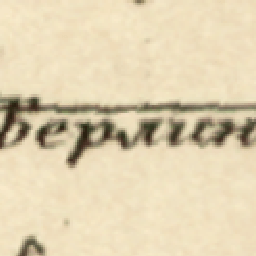 верлин